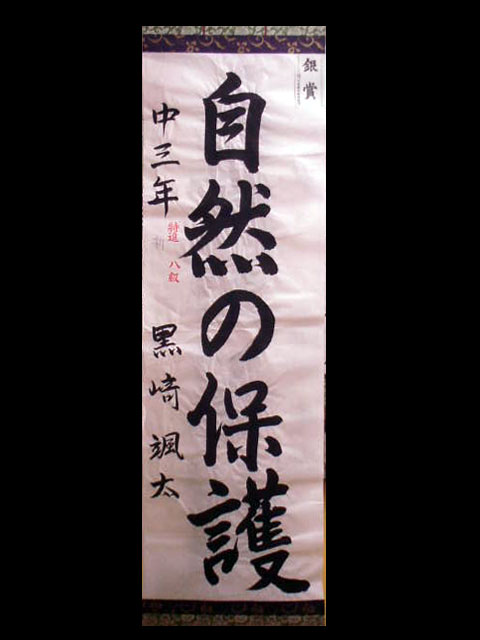 銀賞
自然の保護
中三年
特進 八級
黒崎颯太